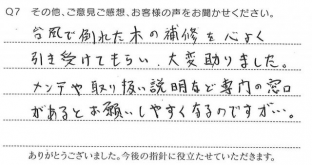 Q7 その他、ご意見ご感想、お客様の声をお聞かせください。
台風で倒れた木の補修を心よく
引き受けてもらい、大変助りました。
メンテや取り扱い説明など専門の窓口
があるとお願いしやすくなるのですが…。
ありがとうございました。今後の指針に役立たせていただきます。